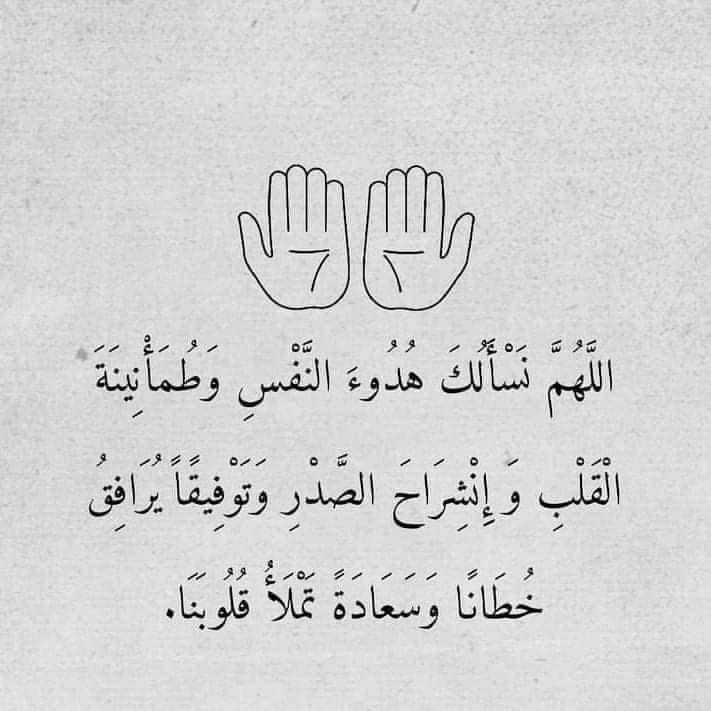 اللَّهُمَّ نَسْأَلُكَ هُدُوءَ النَّفْسِ وَطُمَأْنِينَةَ
الْقَلْبِ وَ إِنْشِرَاحَ الصَّدْرِ وَتَوْفِيقًاً يُرَافِقُ
خُطَانًا وَسَعَادَةً تَمْلَأُ قُلُوبَنَا.